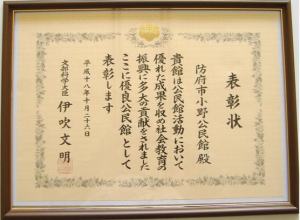 表彰状
防府市小野公民館 殿
貴館は公民館活動において
優れた成果を収め社会教育の
振興に多大の貢献をされました
ここに優良公民館として
表彰します
平成十八年十月二十六日
文部科学大臣 伊吹文明